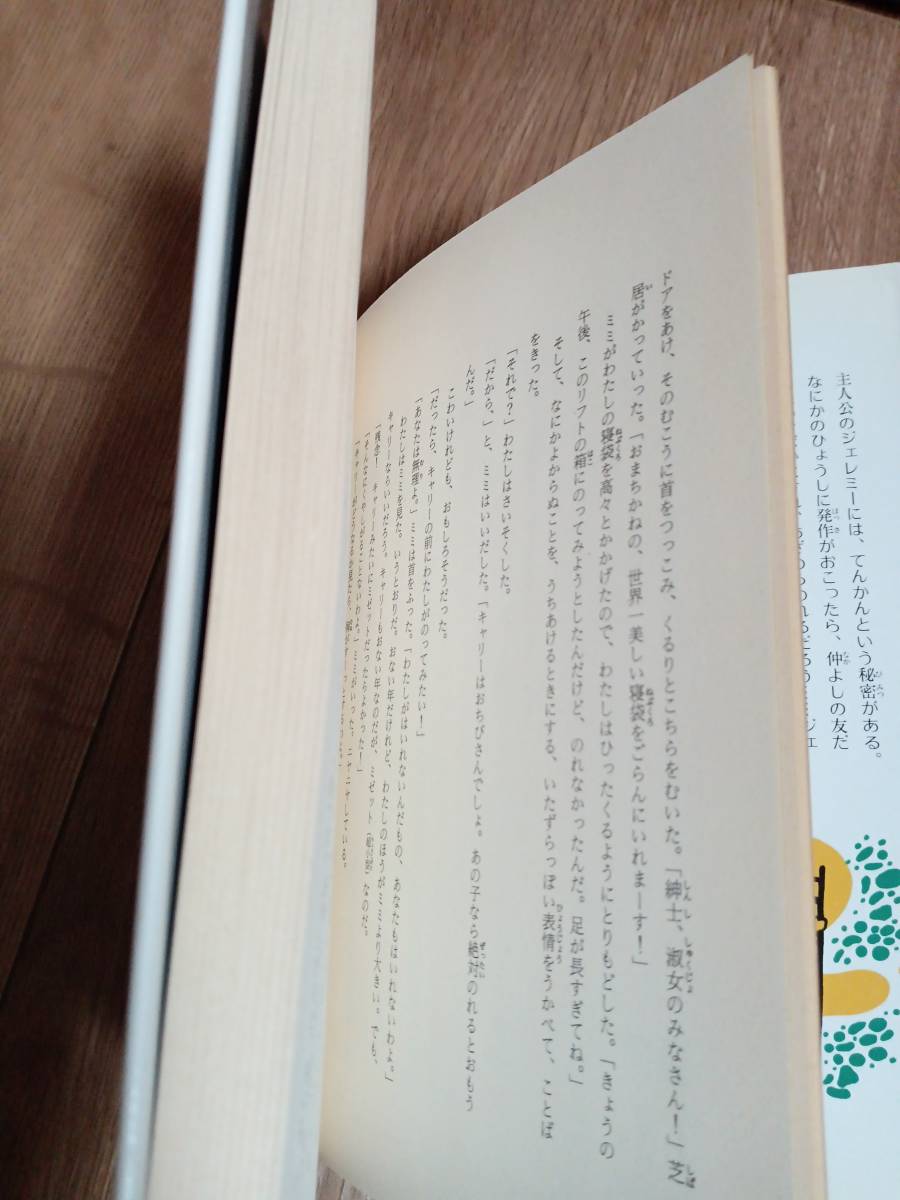 主人公のジェレミーには、てんかんという秘密がある。
なにかのひょうしに発作がおこったら、仲よしの友だ
ドアをあけ、そのむこうに首をつっこみ、くるりとこちらをむいた。「紳士、淑女のみなさん!」芝
居がかっていった。「おまちかねの、世界一美しい寝袋をごらんにいれまーす!」
ミミがわたしの寝袋を高々とかかげたので、わたしはひったくるようにとりもどした。「きょうの
午後、このリフトの箱にのってみようとしたんだけど、のれなかったんだ。足が長すぎてね。」
そして、なにかよからぬことを、うちあけるときにする、いたずらっぽい表情をうかべて、ことば
をきった。
「それで?」わたしはさいそくした。
「だから、」と、ミミはいいだした。「キャリーはおちびさんでしょ。あの子なら絶対のれるとおもう
んだ。」
こわいけれども、おもしろそうだった。
「だったら、キャリーの前にわたしがのってみたい!」
「あなたは無理よ。」ミミは首をふった。「わたしがはいれないんだもの、あなたもはいれないわよ。」
わたしはミミを見た。いうとおりだ。おない年だけれど、わたしのほうがミミより大きい。でも、
キャリーならいいだろう。キャリーもおない年なのだが、ミゼットなのだ。
「残念! キャリーみたいにミゼットだったらよかった!」
「そんなにくやしがることないわよ。」ミミがいった。ニヤニヤしている。